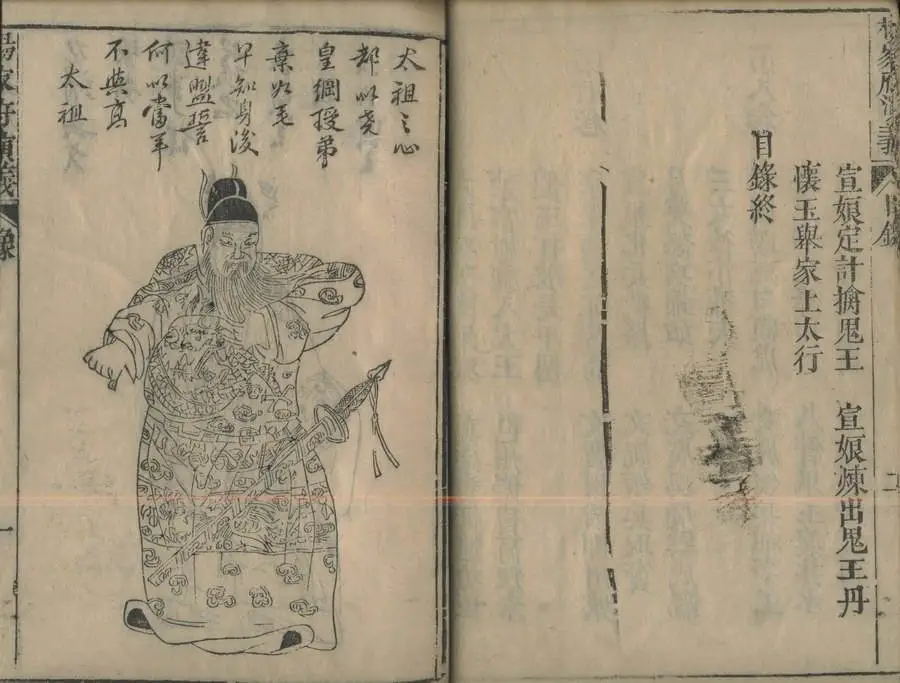 楊家府演義 目錄 二
宣娘定計擒鬼王 宣娘煉出鬼王丹
懷玉舉家上太行
目錄終
太祖之心
都以堯
皇綱授弟
棄如毛
早知身後
違盟誓
何以當年
不與髙
太祖
楊家府演義 像 一